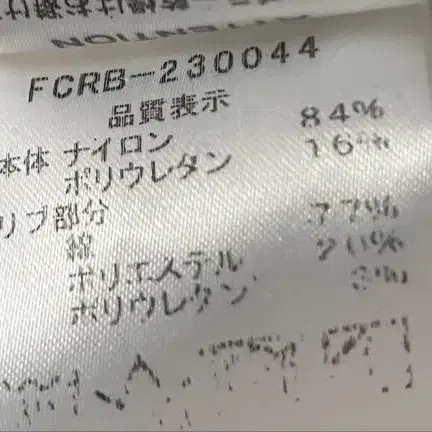 ATTENTION
FCRB-230044
品質表示
本体 ナイロン 84%
ポリウレタン 16%
リブ部分
綿 77%
ポリエステル 20%
ポリウレタン 3%